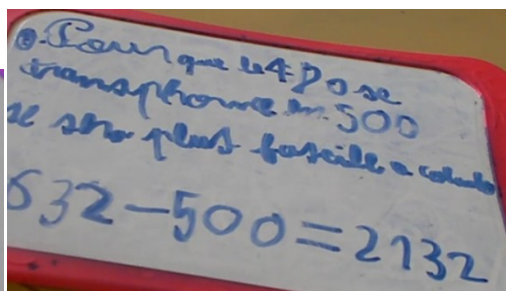 Pour que le 480 se
transphorme en 500
se sera plus fascille a calculer
632-500=2132